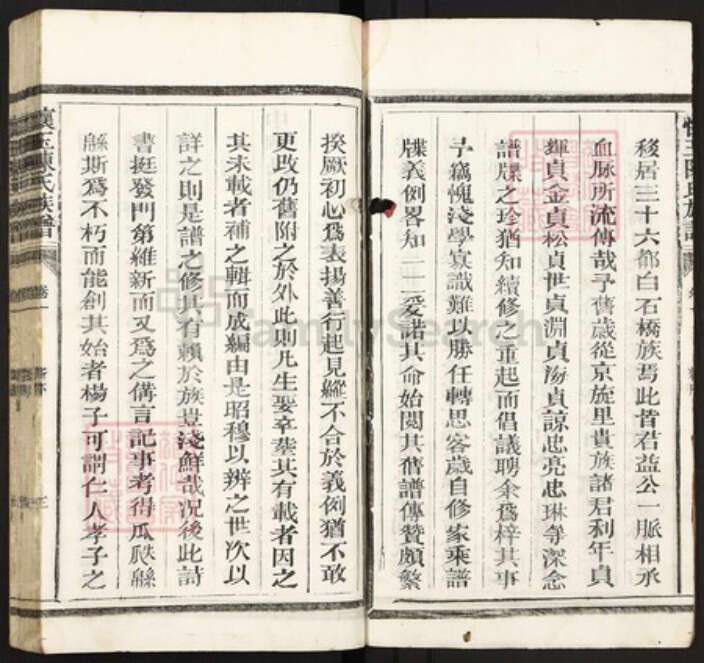 移居三十六都白石橋族焉此皆君益公一脈相承
血脉所流傳哉予舊歲從京旋里貴族諸君利年貞
輝貞金貞松貞世貞淵貞海貞諒忠亮忠琳等深念
譜牒之珍猶知續修之重起而倡議聘余爲梓其事
予爲愧淺學寡識難以勝任轉思客歲自修家乘譜
牒義例畧知一二爰諾其命始閱其舊譜傳贊頗繁
揆厥初心爲表揚善行起見縱不合於義例猶不敢
更改仍舊附之於外此則凡生娶卒塟其有載者因之
其未載者補之輯而成編由是昭穆以辨之世次以
詳之則是譜之修其有賴於族豈淺鮮哉况後此詩
書挺發門第維新而又爲之備言記事考得瓜瓞緜
緜斯爲不朽而能創其始者楊子可謂仁人孝子之
懷玉陳氏族譜
卷一
FamilySearch